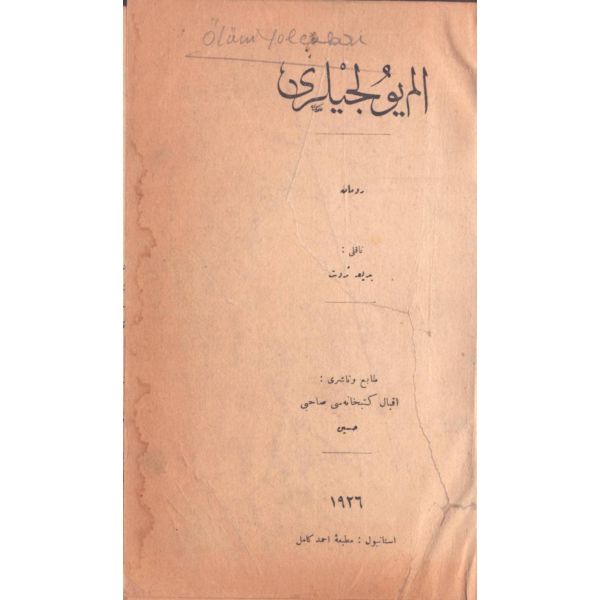 Ölüm Yolcuları
الم يولجيلرى
رومان
ناقلى :
بديعه ثروت
طابع وناشرى :
اقبال كتبخانه‌سى صاحبى
حسين
١٩٢٦
استانبول : مطبعهٔ احمد كامل